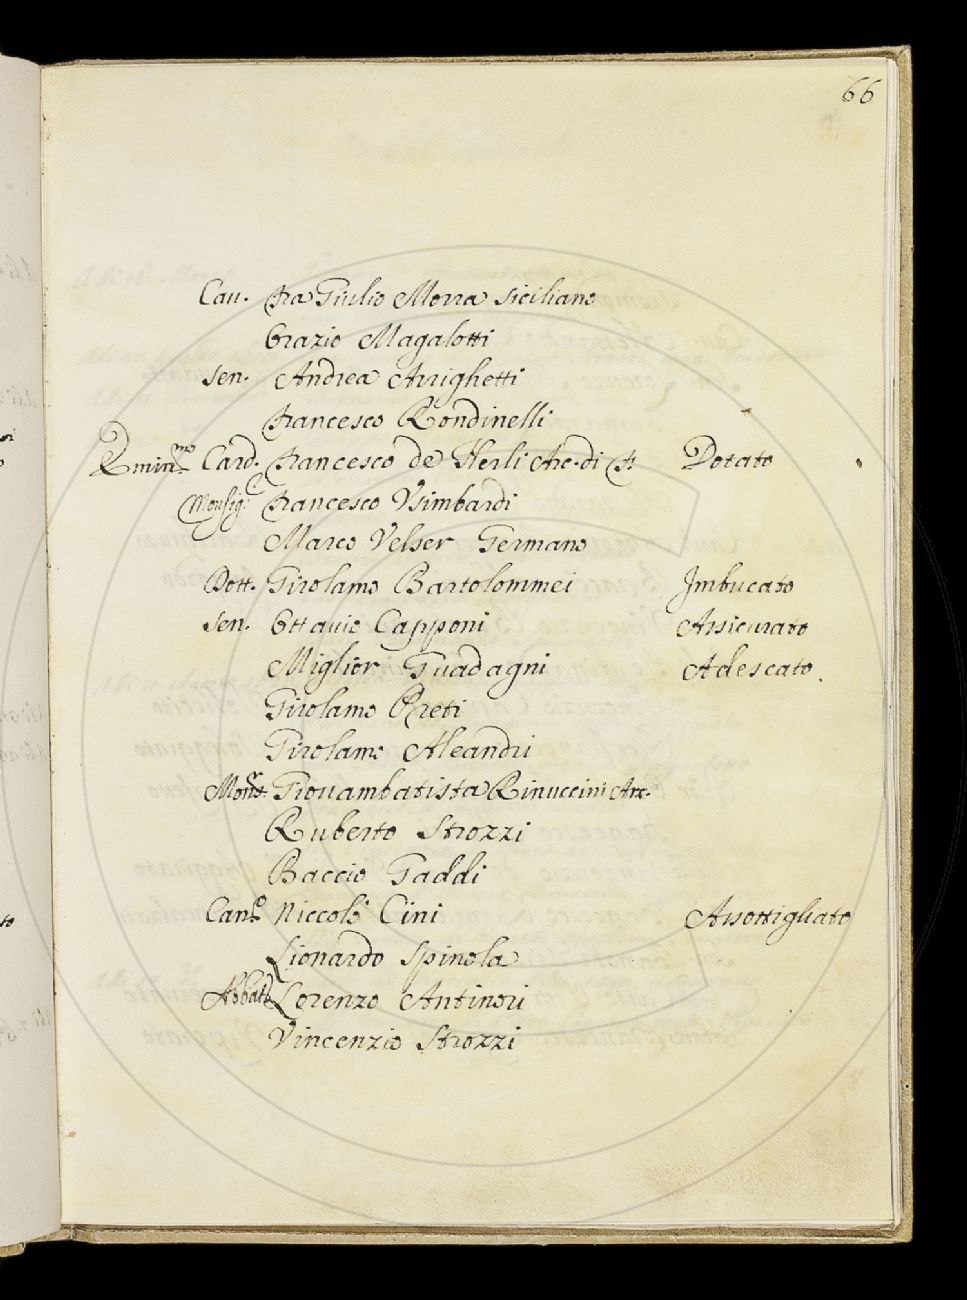 66
Cau. fra Giulio Morra Siciliano
Orazio Magalotti
Sen. Andrea Arrighetti
francesco Rondinelli
Emin.mo Card. francesco de Nerli Arc. di f. Potato
Monsig.r francesco Vsimbardi
Marco Velser Germano
Dott. Girolamo Bartolommei Imbucato
Sen. Ottauio Capponi Assicurato
Miglior Guadagni Adescato
Girolamo Preti
Girolamo Aleandri
Mons.r Giouambatista Rinuccini Arc.
Ruberto Strozzi
Baccio Gaddi
Can.co Niccolò Cini Assottigliato
Lionardo Spinola
Abbate Lorenzo Antinori
Vincenzio Strozzi